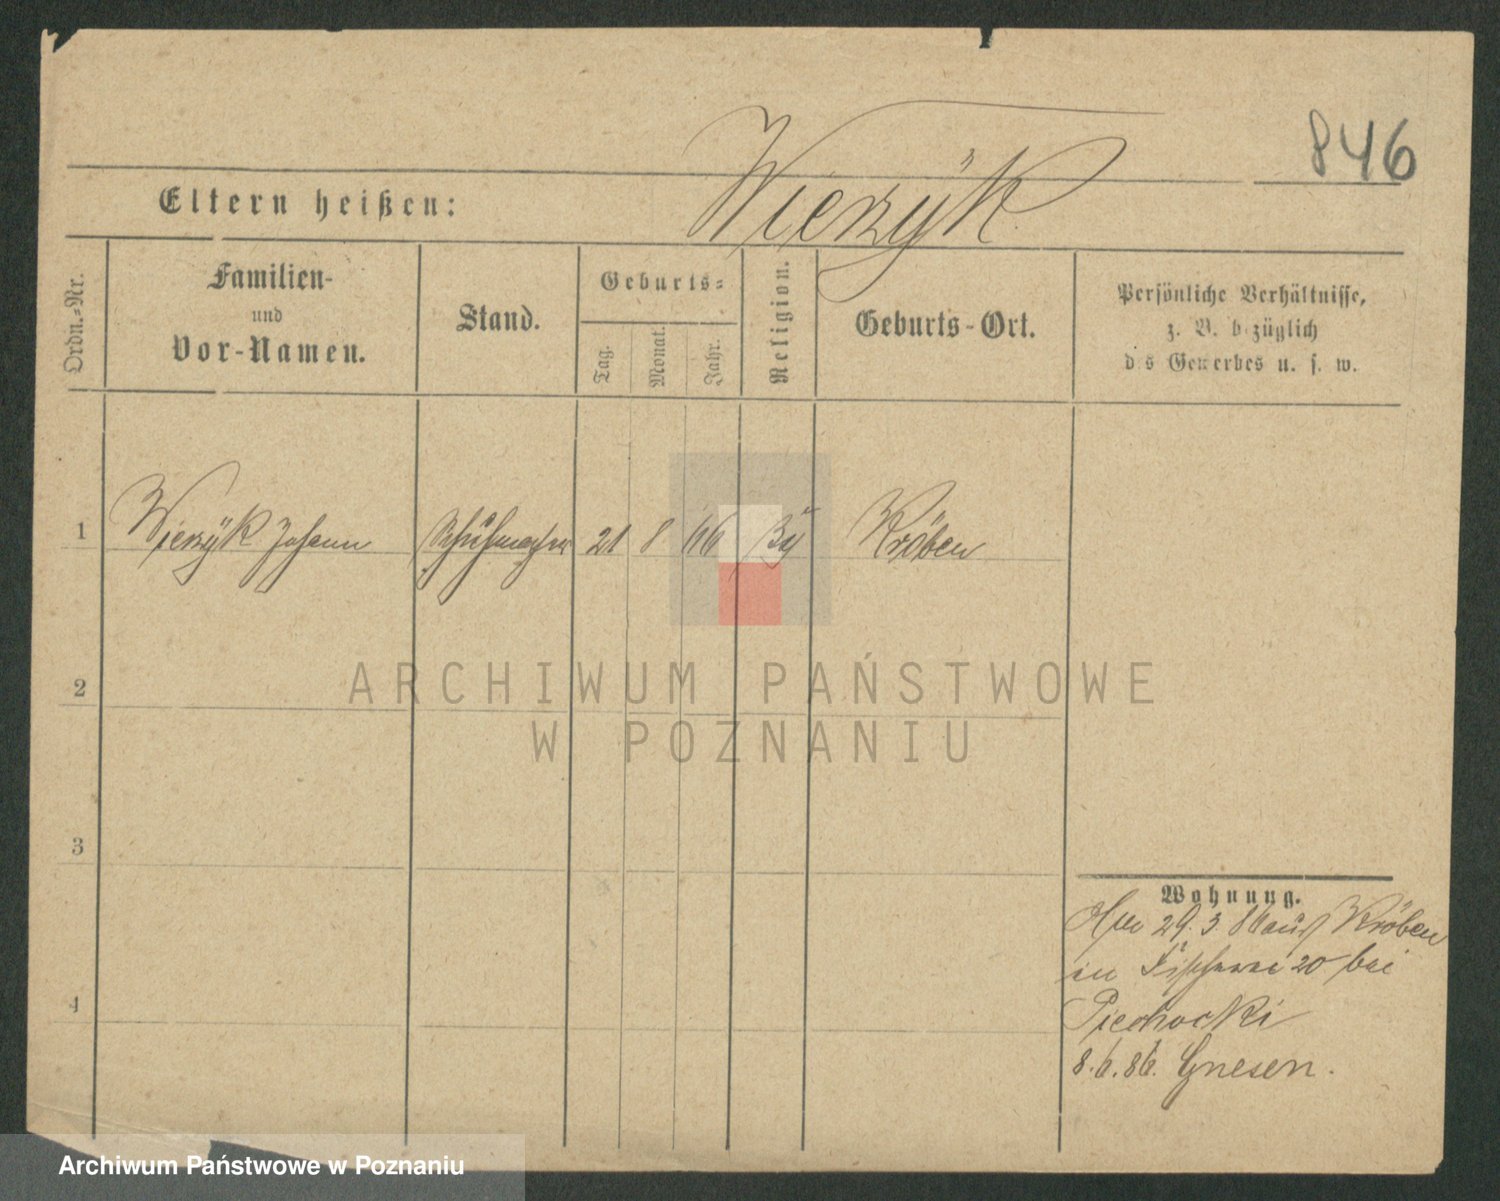 846
Wierzÿk
Eltern heißen:
Ordn.-Nr.
Familien-
und
Vor-Namen.
Stand.
Geburts-
Tag.
Monat.
Jahr.
Religion.
Geburts-Ort.
Persönliche Verhältnisse,
z. B. bezüglich
des Gewerbes u. s. w.
1 Johann Schuhmacher 21 8 66 Kröben
2
3
4
ARCHIWUM PAŃSTWOWE
W POZNANIU
Wohnung.
29. 3. 86 aus Kröben
in Fischerei 20 bei
Piechocki
8.6.86. Gnesen.
Archiwum Państwowe w Poznaniu